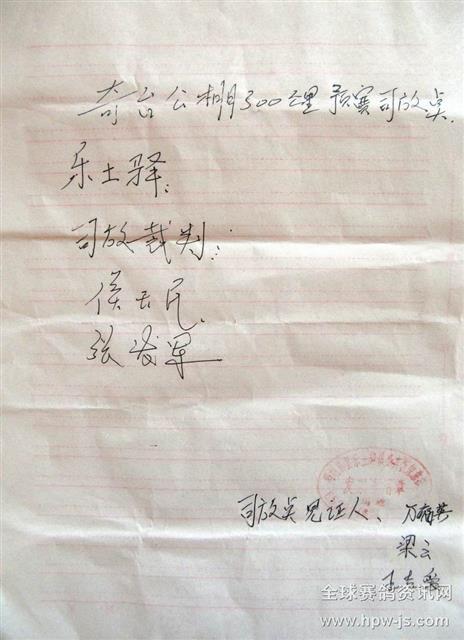 奇台公棚300公里预赛司放点.
乐土驿:
司放裁判:
侯天民、
张发军
司放点见证人、万有英
梁云
王吉爱
全球赛鸽资讯网
www.hpw-js.com